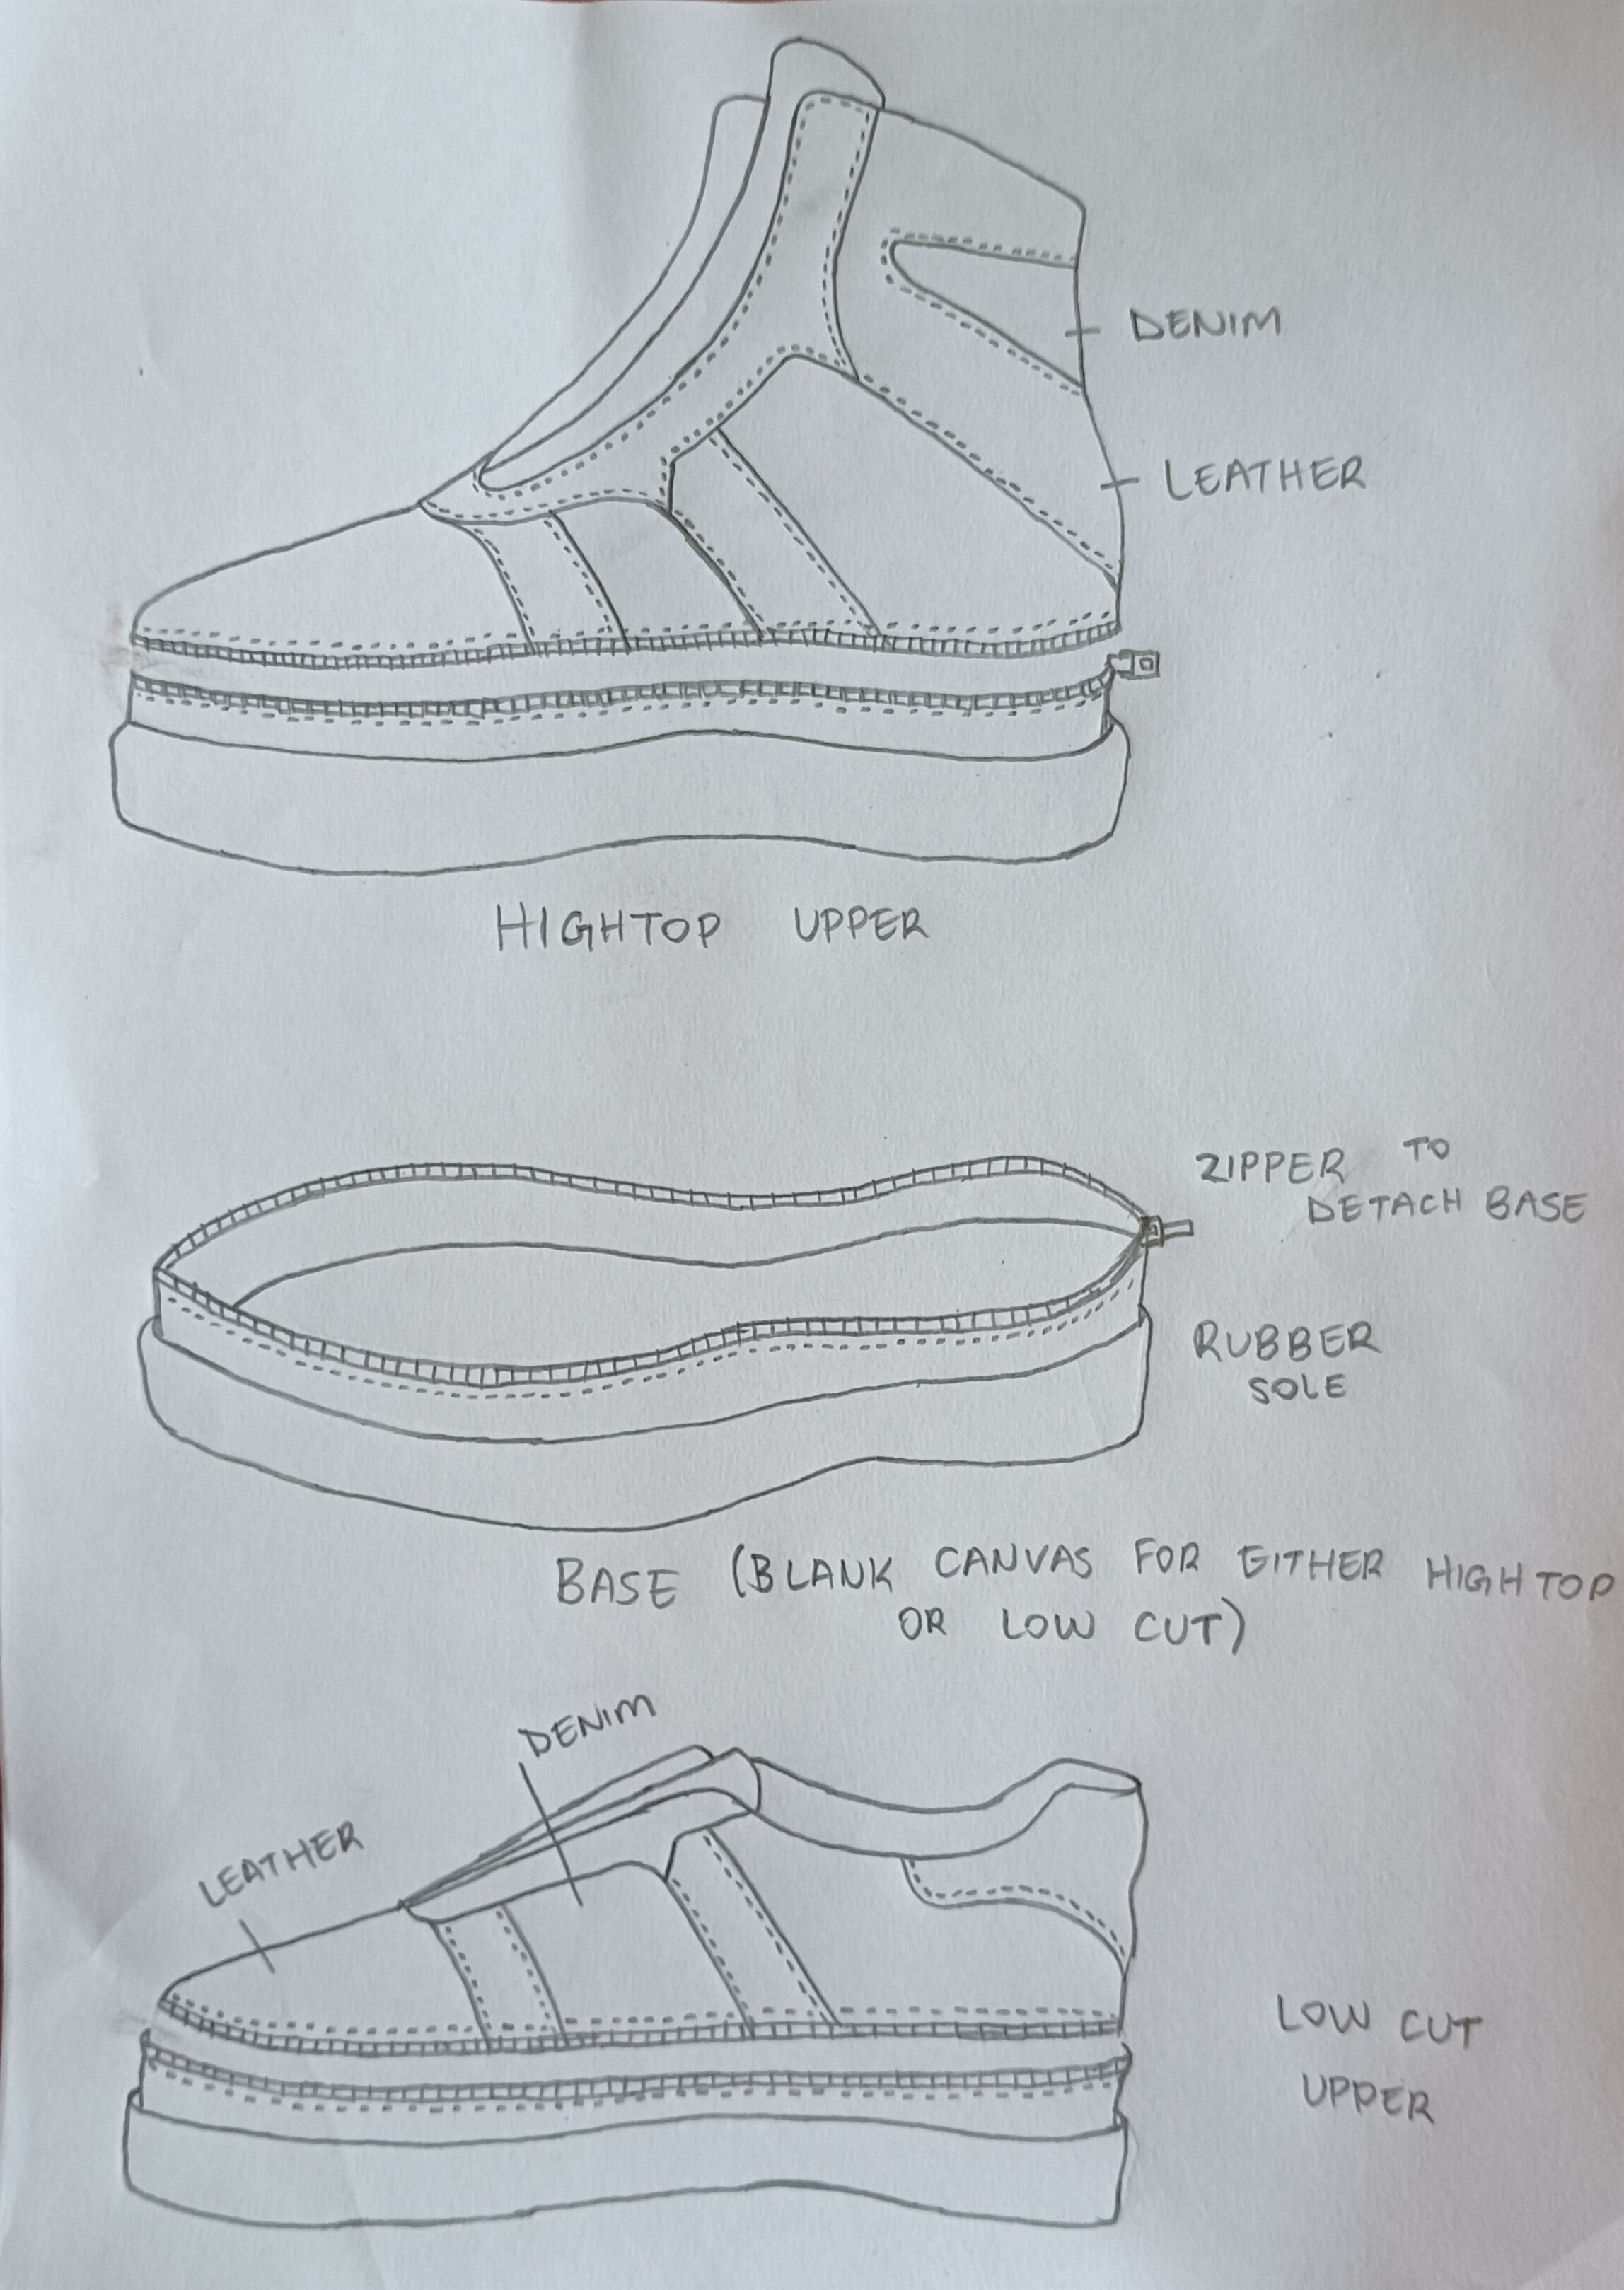 DENIM
LEATHER
HIGHTOP UPPER
ZIPPER TO
DETACH BASE
RUBBER
SOLE
BASE (BLANK CANVAS FOR EITHER HIGHTOP
OR LOW CUT)
DENIM
LEATHER
LOW CUT
UPPER